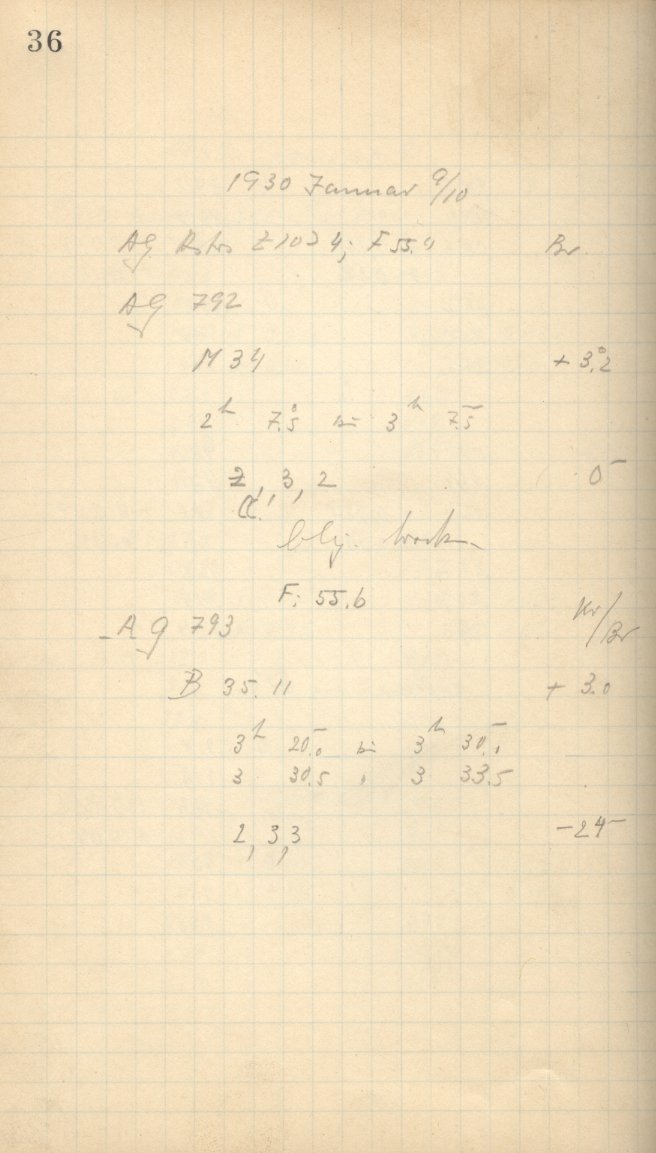 36
1930 Januar 9/10
AG Astro Z 1024; F 55.4 Br.
AG 792
M 34 + 3°.2
2h 7.5 bis 3h 7.5
2, 3, 2 0
☾
F: 55.6
AG 793 Kr/Br
B 35.11 + 3.0
3h 20.0 bis 3h 30.
3 30.5 " 3 33.5
2, 3, 3 -24